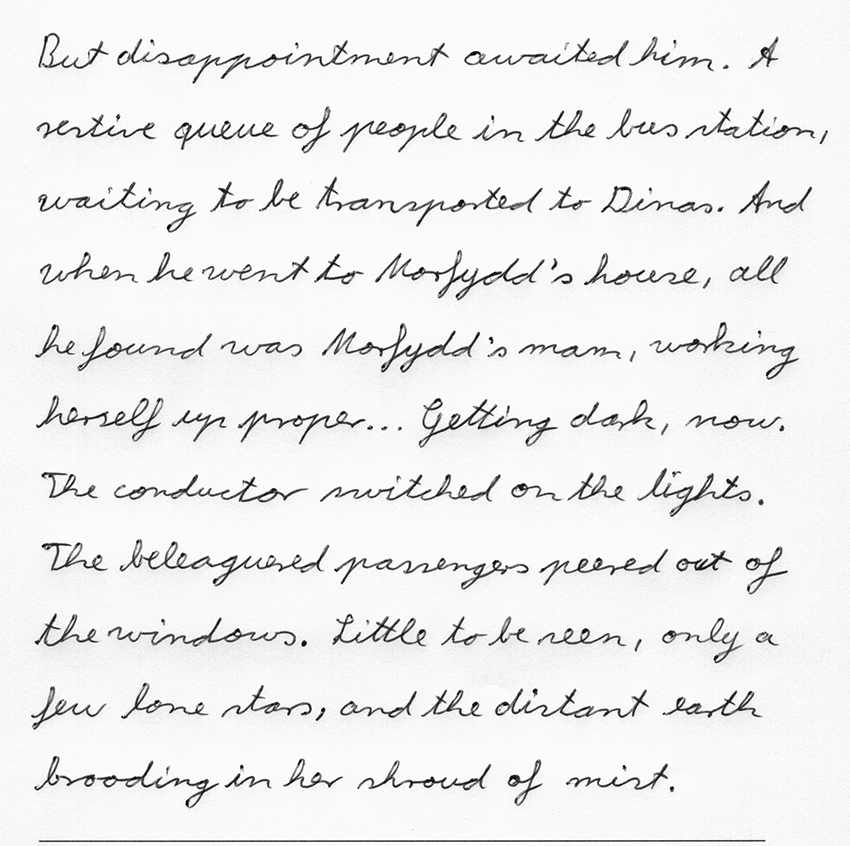 But disappointment awaited him. A
restive queue of people in the bus station,
waiting to be transported to Dinas. And
when he went to Morfydd's house, all
he found was Morfydd's mam, working
herself up proper... Getting dark, now.
The conductor switched on the lights.
The beleaguered passengers peered out of
the windows. Little to be seen, only a
few lone stars, and the distant earth
brooding in her shroud of mist.